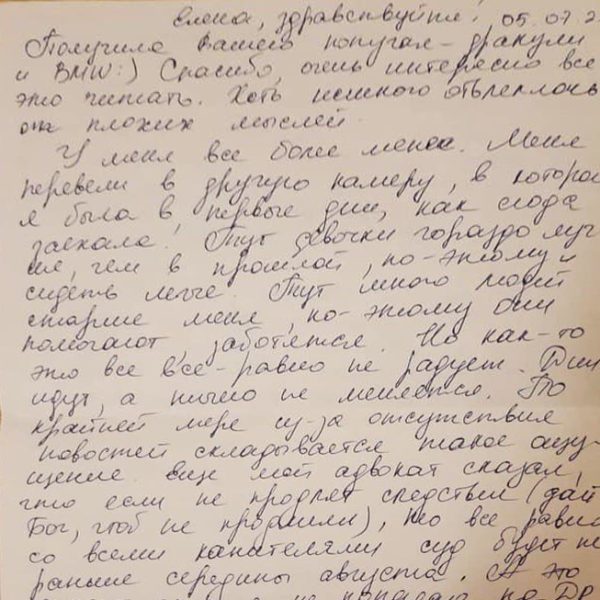 Елена, здравствуйте! 05.07.2
Получила Вашего попугая-дракули
и BMW:) Спасибо, очень интересно все
это читать. Хоть немного отвлеклась
от плохих мыслей.
У меня все более менее. Меня
перевели в другую камеру, в которой
я была в первые дни, как сюда
заехала. Тут девочки гораздо луч
ше, чем в прошлой, по-этому и
сидеть легче. Тут много людей
старше меня, по-этому они
помогают, заботятся. Но как-то
это все все-равно не радует. Дни
идут, а ничего не меняется. По
крайней мере из-за отсутствия
новостей складывается такое ощу-
щение. Еще мой адвокат сказал,
что если не продлят следствие (дай
Бог, чтоб не продлили), то все равно
со всеми канителями суд будет не
раньше середины августа. А это
не попадаю по-Др